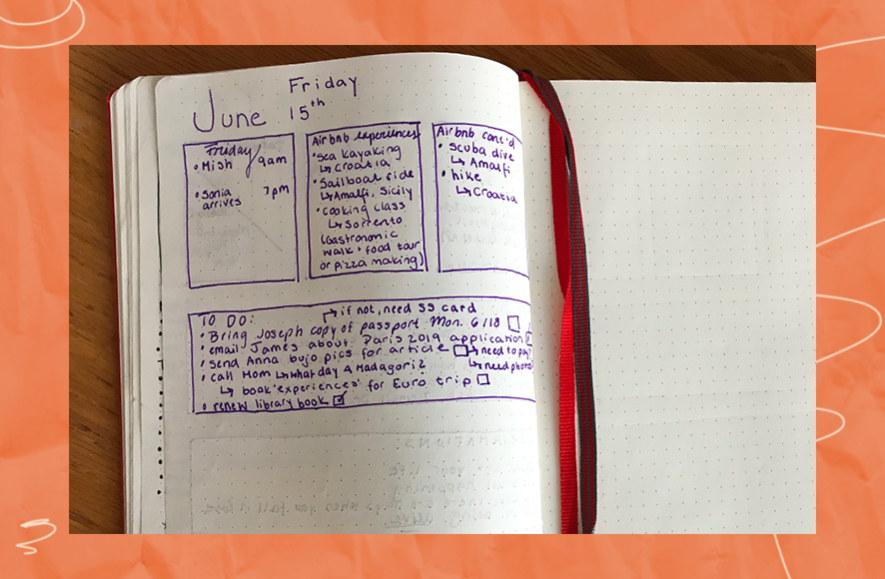 June Friday
15th
Friday
• Mish 9am
• Sonia 7pm
arrives
Airbnb experiences
• Sea Kayaking
↳ Croatia
• Sailboat ride
↳ Amalfi, Sicily
• cooking class
↳ Sorrento
(Gastronomic
walk + food tour
or pizza making)
Airbnb cont'd
• scuba dive
↳ Amalfi
• hike
↳ Croatia
TO DO: if not, need SS card
• Bring Joseph copy of passport Mon. 6/18
• email James about Paris 2019 application
• send Anna bujo pics for article ↳ need to pay?
• call Mom ↳ what day 4 ↳ need phone
↳ book 'experiences' for Euro trip
• renew library book